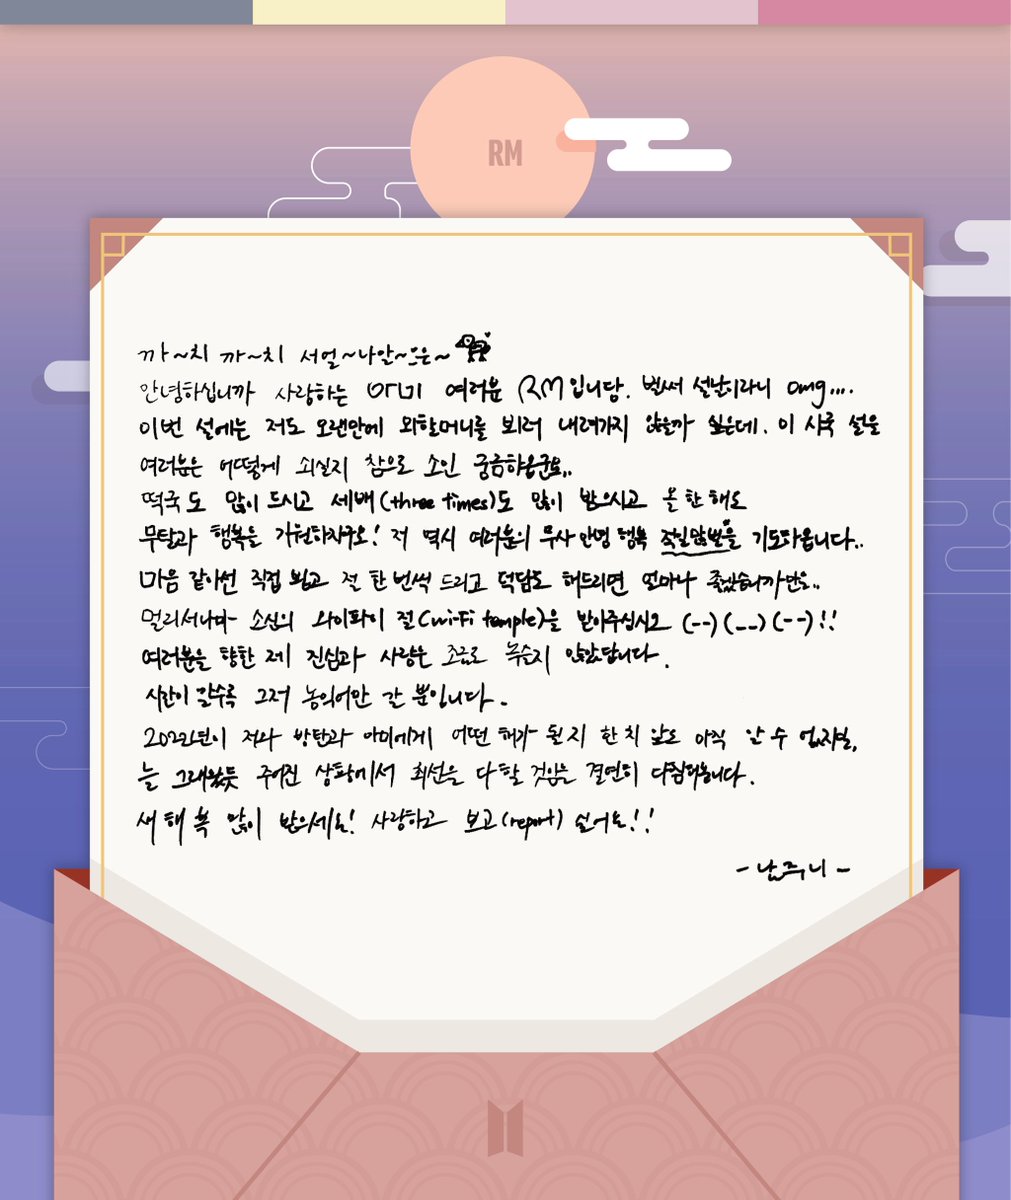 RM
까~치 까~치 서얼~나알~은~
안녕하십니까 사랑하는 아미 여러분 RM입니당. 벌써 설날이라니 omg....
이번 설에는 저도 오랜만에 외할머니를 뵈러 내려가지 않을까 싶은데. 이 시국 설을
여러분은 어떻게 쇠실지 참으로 소인 궁금하온군요..
떡국도 많이 드시고 세배(three times)도 많이 받으시고 올 한 해도
무탈과 행복을 기원하자구요! 저 역시 여러분의 무사 안녕 행복 을 기도하옵니다..
마음 같아선 직접 뵙고 절 한 번씩 드리고 덕담도 해드리면 얼마나 좋겠습니까만은..
멀리서나마 소신의 와이파이 절(wi-fi temple)을 받아주십시오 (--)(__)(--)!!
여러분을 향한 제 진심과 사랑은 조금도 녹슬지 않았답니다.
시간이 갈수록 그저 농익어만 갈 뿐입니다.
2022년이 저와 방탄과 아미에게 어떤 해가 될지 한 치 앞도 아직 알 수 없지만,
늘 그래왔듯 주어진 상황에서 최선을 다할 것임을 결연히 다짐해봅니다.
새해 복 많이 받으세요! 사랑하고 보고(report) 싶어요!!
- 남주니 -